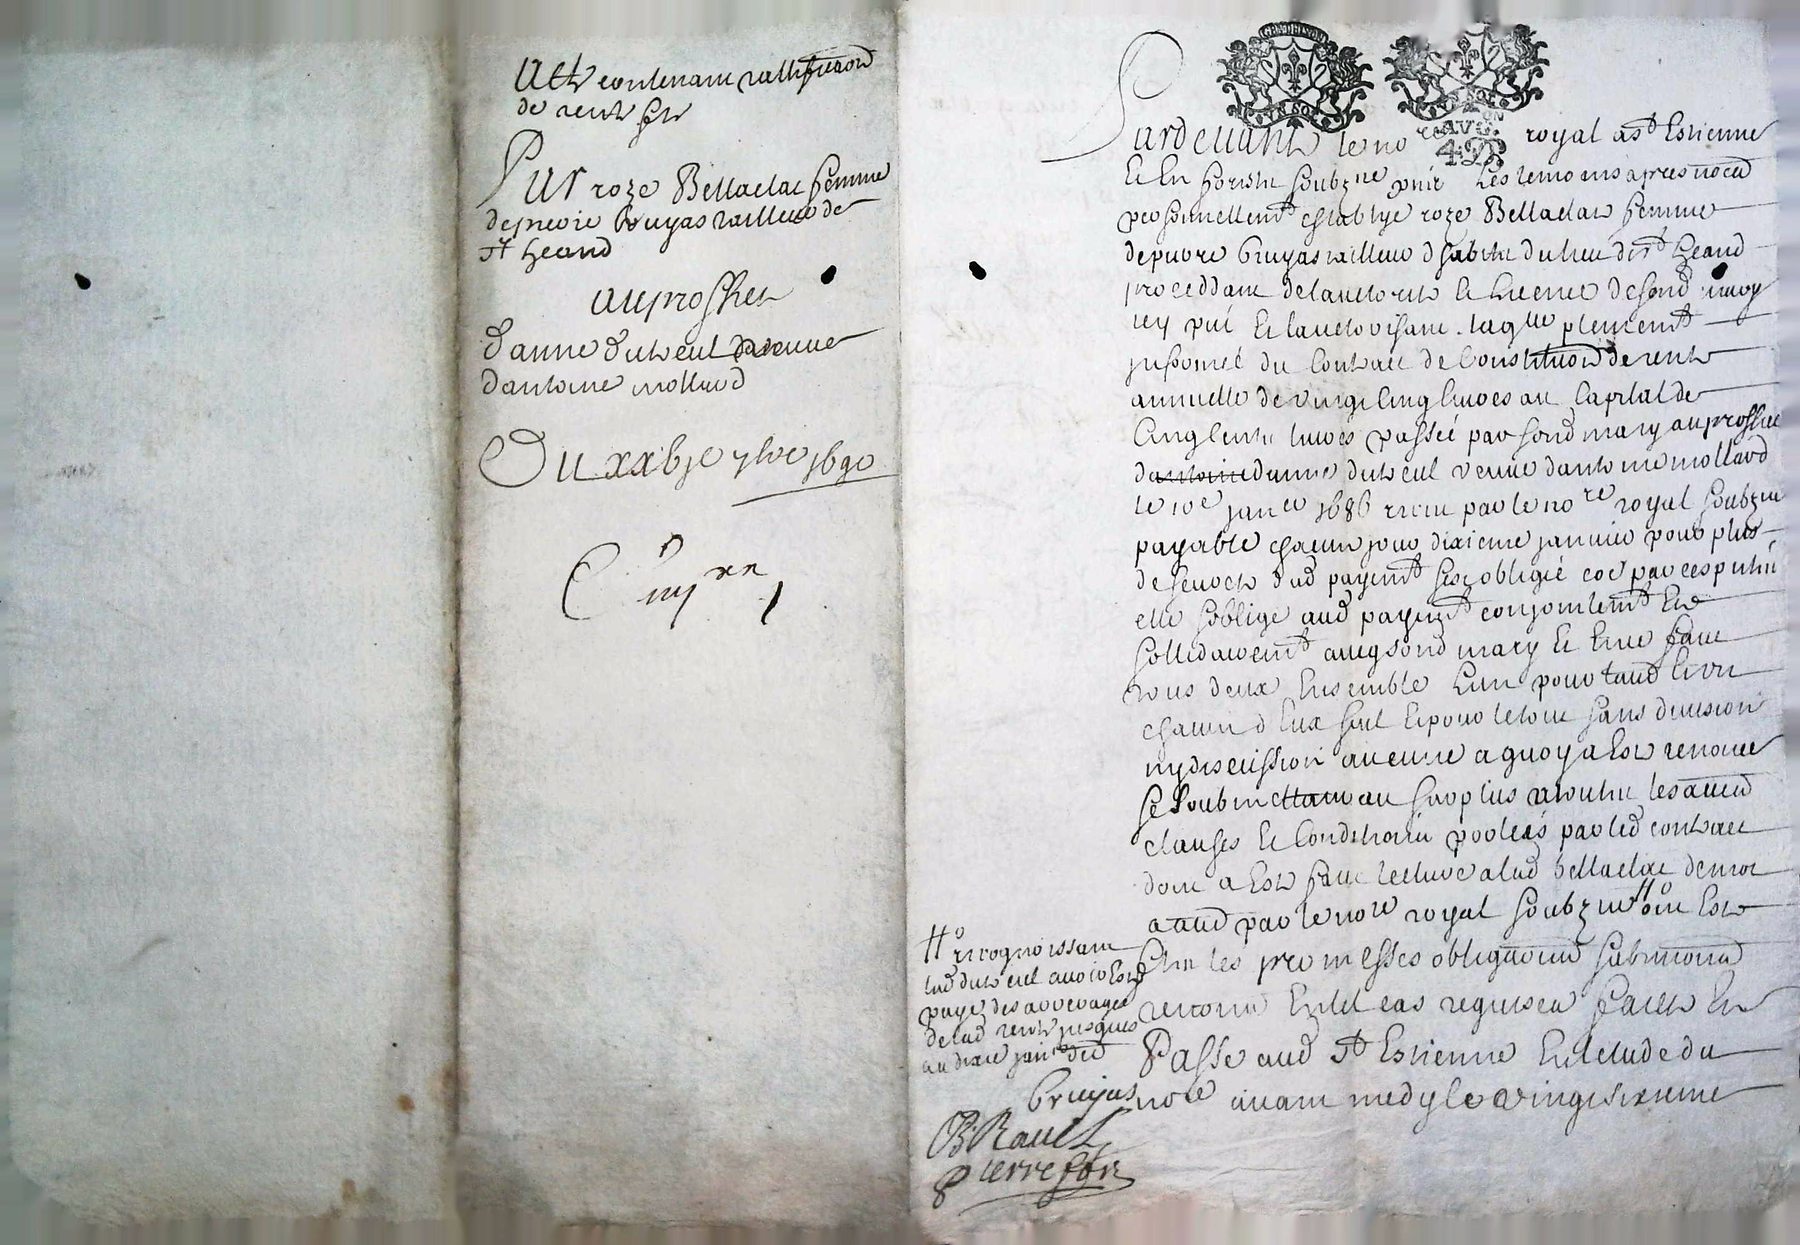 Acte contenant rattiffication
de rente fte
Par roze Bellaclat femme
de pierre bruyas tailleur de
St heand
au proffict
d'anne duteul vefve
d'antoine mollard
Du xxbje 7bre 1690
Pardevant le no re royal a st Estienne
Et En forestz soubzne pnt Les temoins apres nomed
personnellemt establye roze Bellaclat femme
de pierre bruyas tailleur d habitz du lieu de st heand
proceddant de l'autorite et licence de sond mary
icy pnt Et l'autorisant laqlle plenemt
informee du Contract de Constitution de rente
annuelle de vingt Cinq livres au Capital de
Cinq Cents livres passée par sond mary au proffict
dantoine danne duteul vefve d'antoine mollard
le 10e janer 1686 receu par le no re royal soubzne
payable chacun jour dixieme janvier pour plus
de seureté dud payemt
elle soblige aud payemt conjointemt Et
sollidairemt avecq sond mary Et L'une
tous deux Ensemble L'un pour l'autre
chacun d'Eux seul Et pour le tout sans division
ny discution aucune a quoy a Esté renoncé
se soubmettant au surplus a toutes les autres
clauses Et Conditions portées par led contract
dont a Esté faict lecture a lad bellaclat de mot
a aud par le nore royal soubzne Ho
les promesses obligations submions
renons En tel cas requises faict Et
Passé aud st Estienne En l'etude du
nore avant midy le vingt sixieme
Ho recognoissant
lad duteul avoir Esté
payé des arrerages
de lad rente jusques
au dixe janer der
bruyas
B. Ravel
Pierrefort
AVG.ON